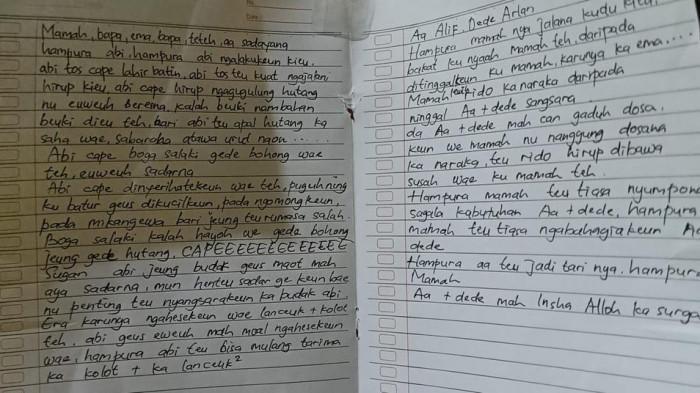 Mamah, bapa, ema, bapa, teteh, aa sadayana
hampura abi, hampura abi ngalakukeun kieu.
abi tos cape lahir batin, abi tos teu kuat ngajalani
hirup kieu, abi cape hirup ngagugulung hutang
nu euweuh berema, kalah beuki nambahan
beuki dieu teh, bari abi teu apal hutang ka
saha wae, sabaraha atawa urut naon ......
Abi cape boga salaki gede bohong wae
teh, euweuh sadarna
Abi cape dinyerihatekeun wae teh, puguhning
ku batur geus dikucilkeun, pada ngomongkeun,
pada mikangewa bari jeung teu rumasa salah.
Boga salaki kalah hayoh we gede bohong
jeung gede hutang, CAPEEEEEEEEEEEEE
Sugan abi jeung budak geus maot mah
aya sadarna, mun henteu sadar ge keun bae
nu penting teu nyangsarakeun ka budak abi.
Era karunya ngahesekeun wae lanceuk + kolot
teh, abi geus euweuh mah moal ngahesekeun
wae, hampura abi teu bisa mulang tarima
ka kolot + ka lanceuk²
Aa Alif, Dede Arlan
Hampura mamah nya jalana kudu kieu,
bakat ku nyaah mamah teh, daripada
ditinggalkeun ku mamah, karunya ka ema....
Mamah rido ka naraka daripada
ninggal Aa + dede sangsara
da Aa + dede mah can gaduh dosa,
keun we mamah nu nanggung dosana
ka naraka, teu rido hirup dibawa
susah wae ku mamah teh.
Hampura mamah teu tiasa nyumpone
sagala kabutuhan Aa + dede, hampura
mamah teu tiasa ngabahagiakeun Aa
dede
Hampura aa teu jadi tari nya. hampura
Mamah
Aa + dede mah Insha Alloh ka surga